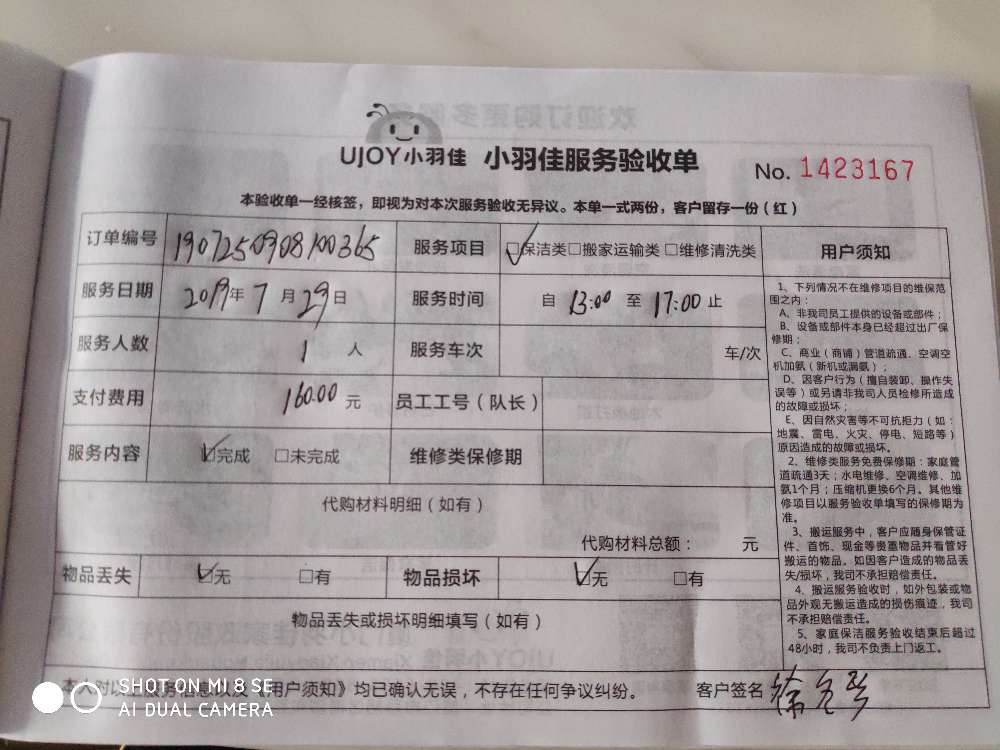 UJOY小羽佳 小羽佳服务验收单 No. 1423167
本验收单一经核签，即视为对本次服务验收无异议。本单一式两份，客户留存一份（红）
订单编号 1907250908100365 服务项目 □保洁类□搬家运输类 □维修清洗类
服务日期 2019年 7 月 29 日 服务时间 自 13:00 至 17:00 止
服务人数 1 人 服务车次 车/次
支付费用 160.00 元 员工工号（队长）
服务内容 ☑完成 □未完成 维修类保修期
代购材料明细（如有）
代购材料总额： 元
物品丢失 ☑无 □有 物品损坏 ☑无 □有
物品丢失或损坏明细填写（如有）
用户须知
1、下列情况不在维修项目的维保范
围之内：
A、非我司员工提供的设备或部件；
B、设备或部件本身已经超过出厂保
修期；
C、商业（商铺）管道疏通、空调空
机加氨（新机或漏氨）；
D、因客户行为（擅自装卸、操作失
误等）或另请非我司人员检修所造成
的故障或损坏；
E、因自然灾害等不可抗拒力（如：
地震、雷电、火灾、停电、短路等）
原因造成的故障或损坏。
2、维修类服务免费保修期：家庭管
道疏通3天；水电维修、空调维修、加
氨1个月；压缩机更换6个月。其他维
修项目以服务验收单填写的保修期为
准。
3、搬运服务中，客户应随身保管证
件、首饰、现金等贵重物品并看管好
搬运的物品。如因客户造成的物品丢
失/损坏，我司不承担赔偿责任。
4、搬运服务验收时，如外包装或物
品外观无搬运造成的损伤痕迹，我司
不承担赔偿责任。
5、家庭保洁服务验收结束后超过
48小时，我司不负责上门返工。
本人对以上服务信息以及《用户须知》均已确认无误，不存在任何争议纠纷。 客户签名 徐
SHOT ON MI 8 SE
AI DUAL CAMERA